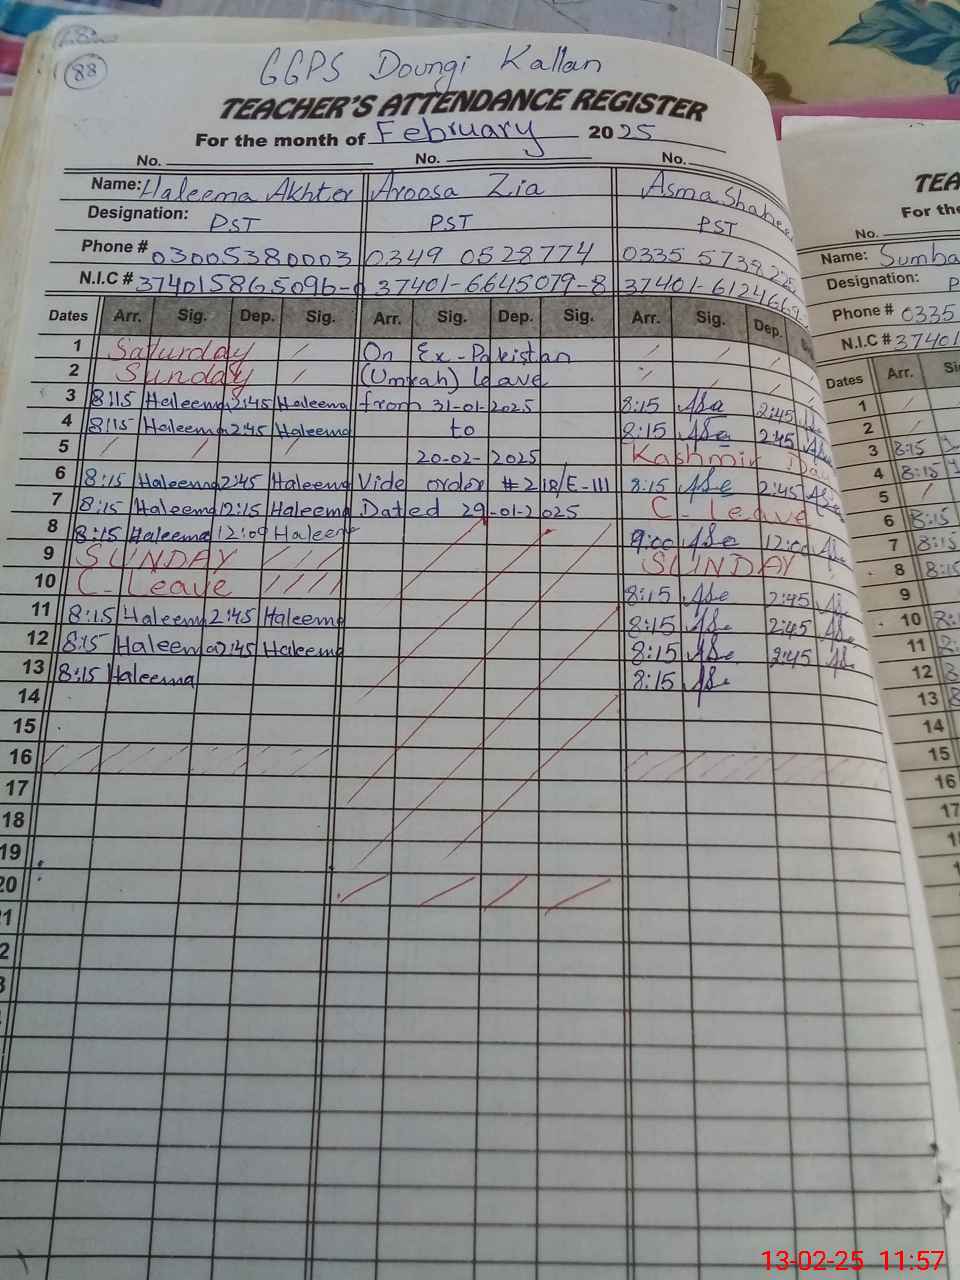 88
GGPS Doungi Kallan
TEACHER'S ATTENDANCE REGISTER
For the month of February 2025
No. No. No.
Name: Haleema Akhter Aroosa Zia Asma Shaheen
Designation: PST PST PST
Phone # 03005380003 0349 0528774 0335 5739
N.I.C # 37401 37401-6645079-8 37401-6124
Dates Arr. Sig. Dep. Sig. Arr. Sig. Dep. Sig. Arr. Sig. Dep.
1 Saturday On Ex-Pakistan
2 Sunday (Umrah) leave
3 8:15 Haleema 2:45 Haleema from 31-01-2025 8:15 2:45
4 8:15 Haleema 2:45 Haleema to 8:15 2:45
5 20-02-2025 Kashmir Day
6 8:15 Haleema 2:45 Haleema Vide order # 218/E-III 8:15 2:45
7 8:15 Haleema 12:15 Haleema Dated 29-01-2025 C-Leave
8 8:15 Haleema 12:09 Haleema 9:00 12:00
9 SUNDAY SUNDAY
10 C-Leave 8:15 2:45
11 8:15 Haleema 2:45 Haleema 8:15 2:45
12 8:15 Haleema 2:45 Haleema 8:15 2:45
13 8:15 Haleema 8:15
14
15
16
17
18
19
20
TEA
For the
No.
Name: Sumba
Designation: P
Phone # 0335
N.I.C # 37401
Dates Arr. Si
1
2
3 8:15
4 8:15
5
6 8:15
7 8:15
8 8:15
9
10 8:1
11 8:
12 8
13 8
14
15
16
17
13-02-25 11:57